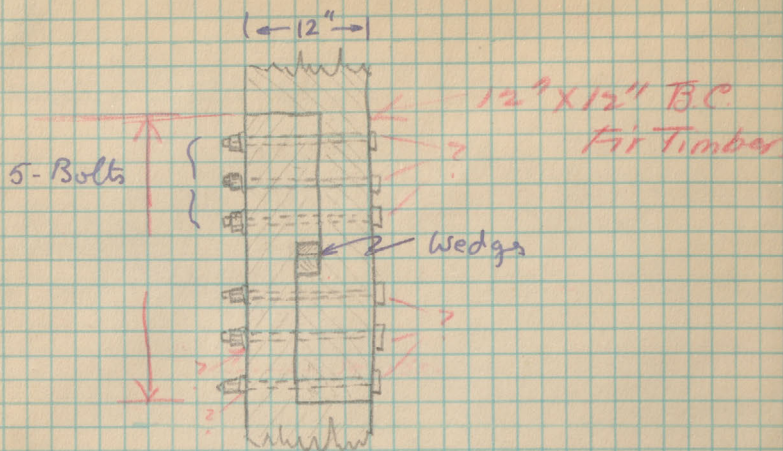 12"
12" X 12" B.C.
Fir Timber
?
5-Bolts
Wedge
?
?
?